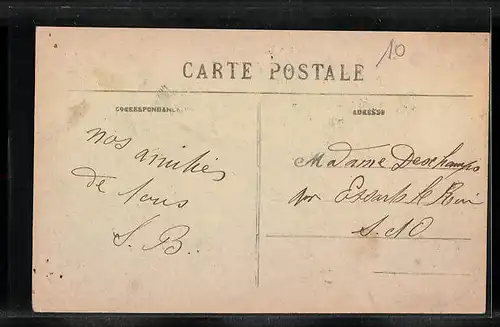 10
CARTE POSTALE
CORRESPONDANCE
ADRESSE
nos amitiés
de tous
S. B..
Madame Deschamps
Essarts le Roi
S. &O.